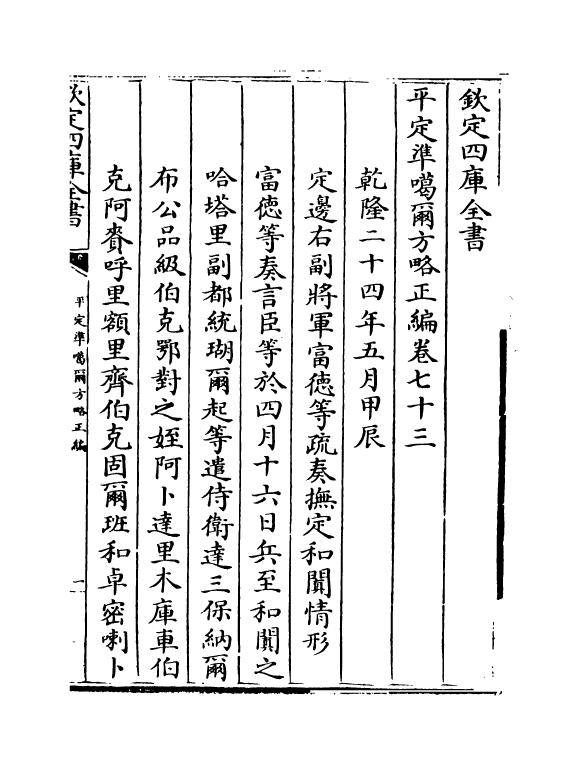 欽定四庫全書
平定準噶爾方略正編卷七十三
乾隆二十四年五月甲辰
定邊右副將軍富徳等疏奏撫定和闐情形
富徳等奏言臣等於四月十六日兵至和闐之
哈塔里副都統瑚爾起等遣侍衛達三保納爾
布公品級伯克鄂對之姪阿卜達里木庫車伯
克阿賚呼里額里齊伯克固爾班和卓密喇卜
欽定四庫全書
平定準噶爾方略正編
一